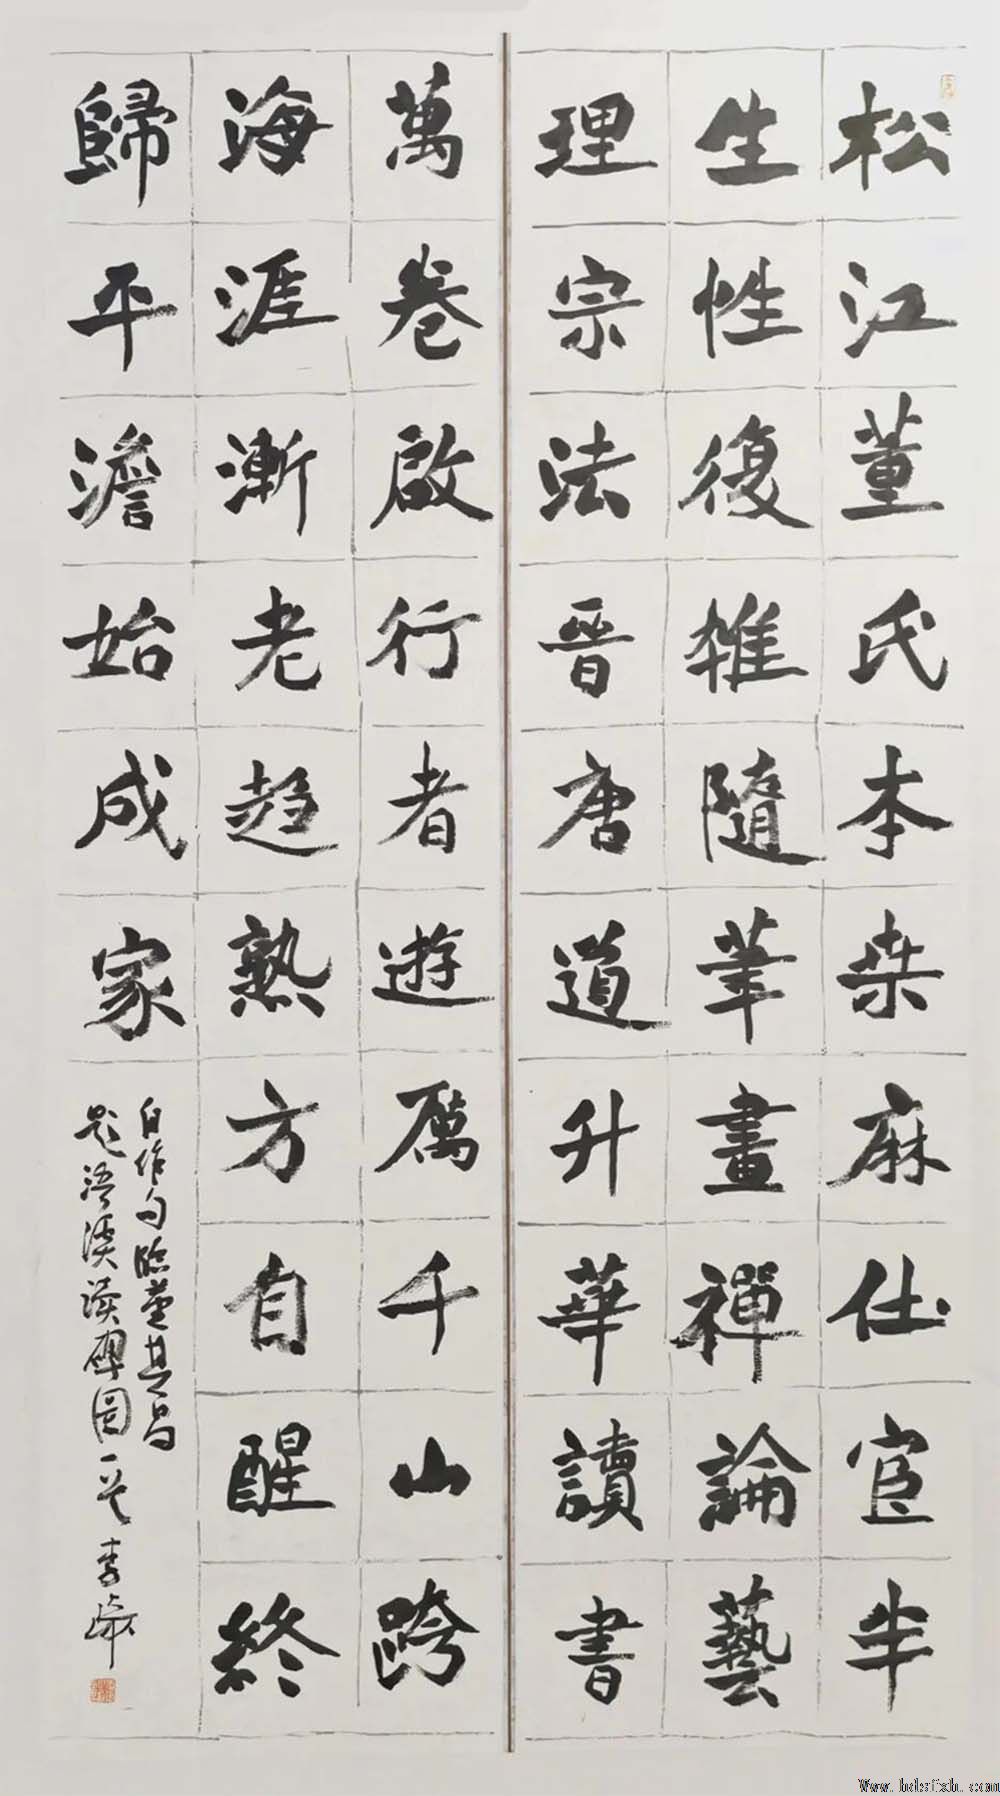 松江董氏本桑麻仕宦半
生性復雅隨筆畫禪論藝
理宗法晉唐道升華讀書
萬卷啟行者遊厲千山跨
海涯漸老趋熟方自醒終
歸平澹始成家
自作句臨董其昌
題浯溪讀碑圖一
李